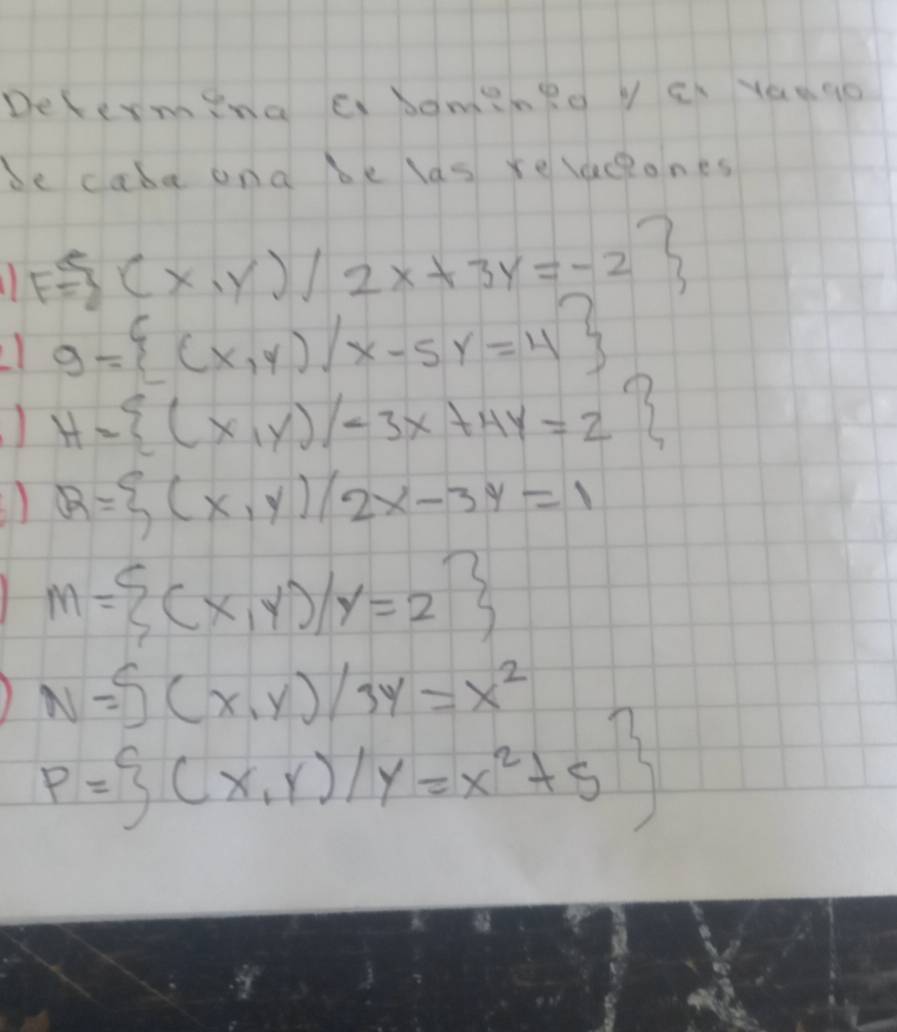 Determina el dominio y el rango
de cada una de las relaciones
1) F={(x,y)/2x+3y=-2}
2) g={(x,y)/x-5y=4}
) H={(x,y)/-3x+4y=2}
) R={(x,y)/2x-3y=1
) M={(x,y)/y=2}
) N={(x,y)/3y=x²
P={(x,y)/y=x²+5}